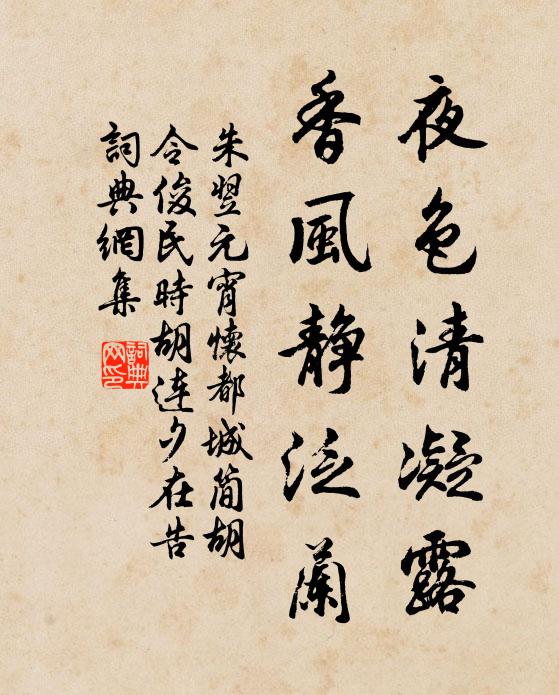 夜色清凝露
香風静泛蘭
朱翌元宵懷都城简胡
令俊民時胡连夕在告
詞典網集
詞典网印